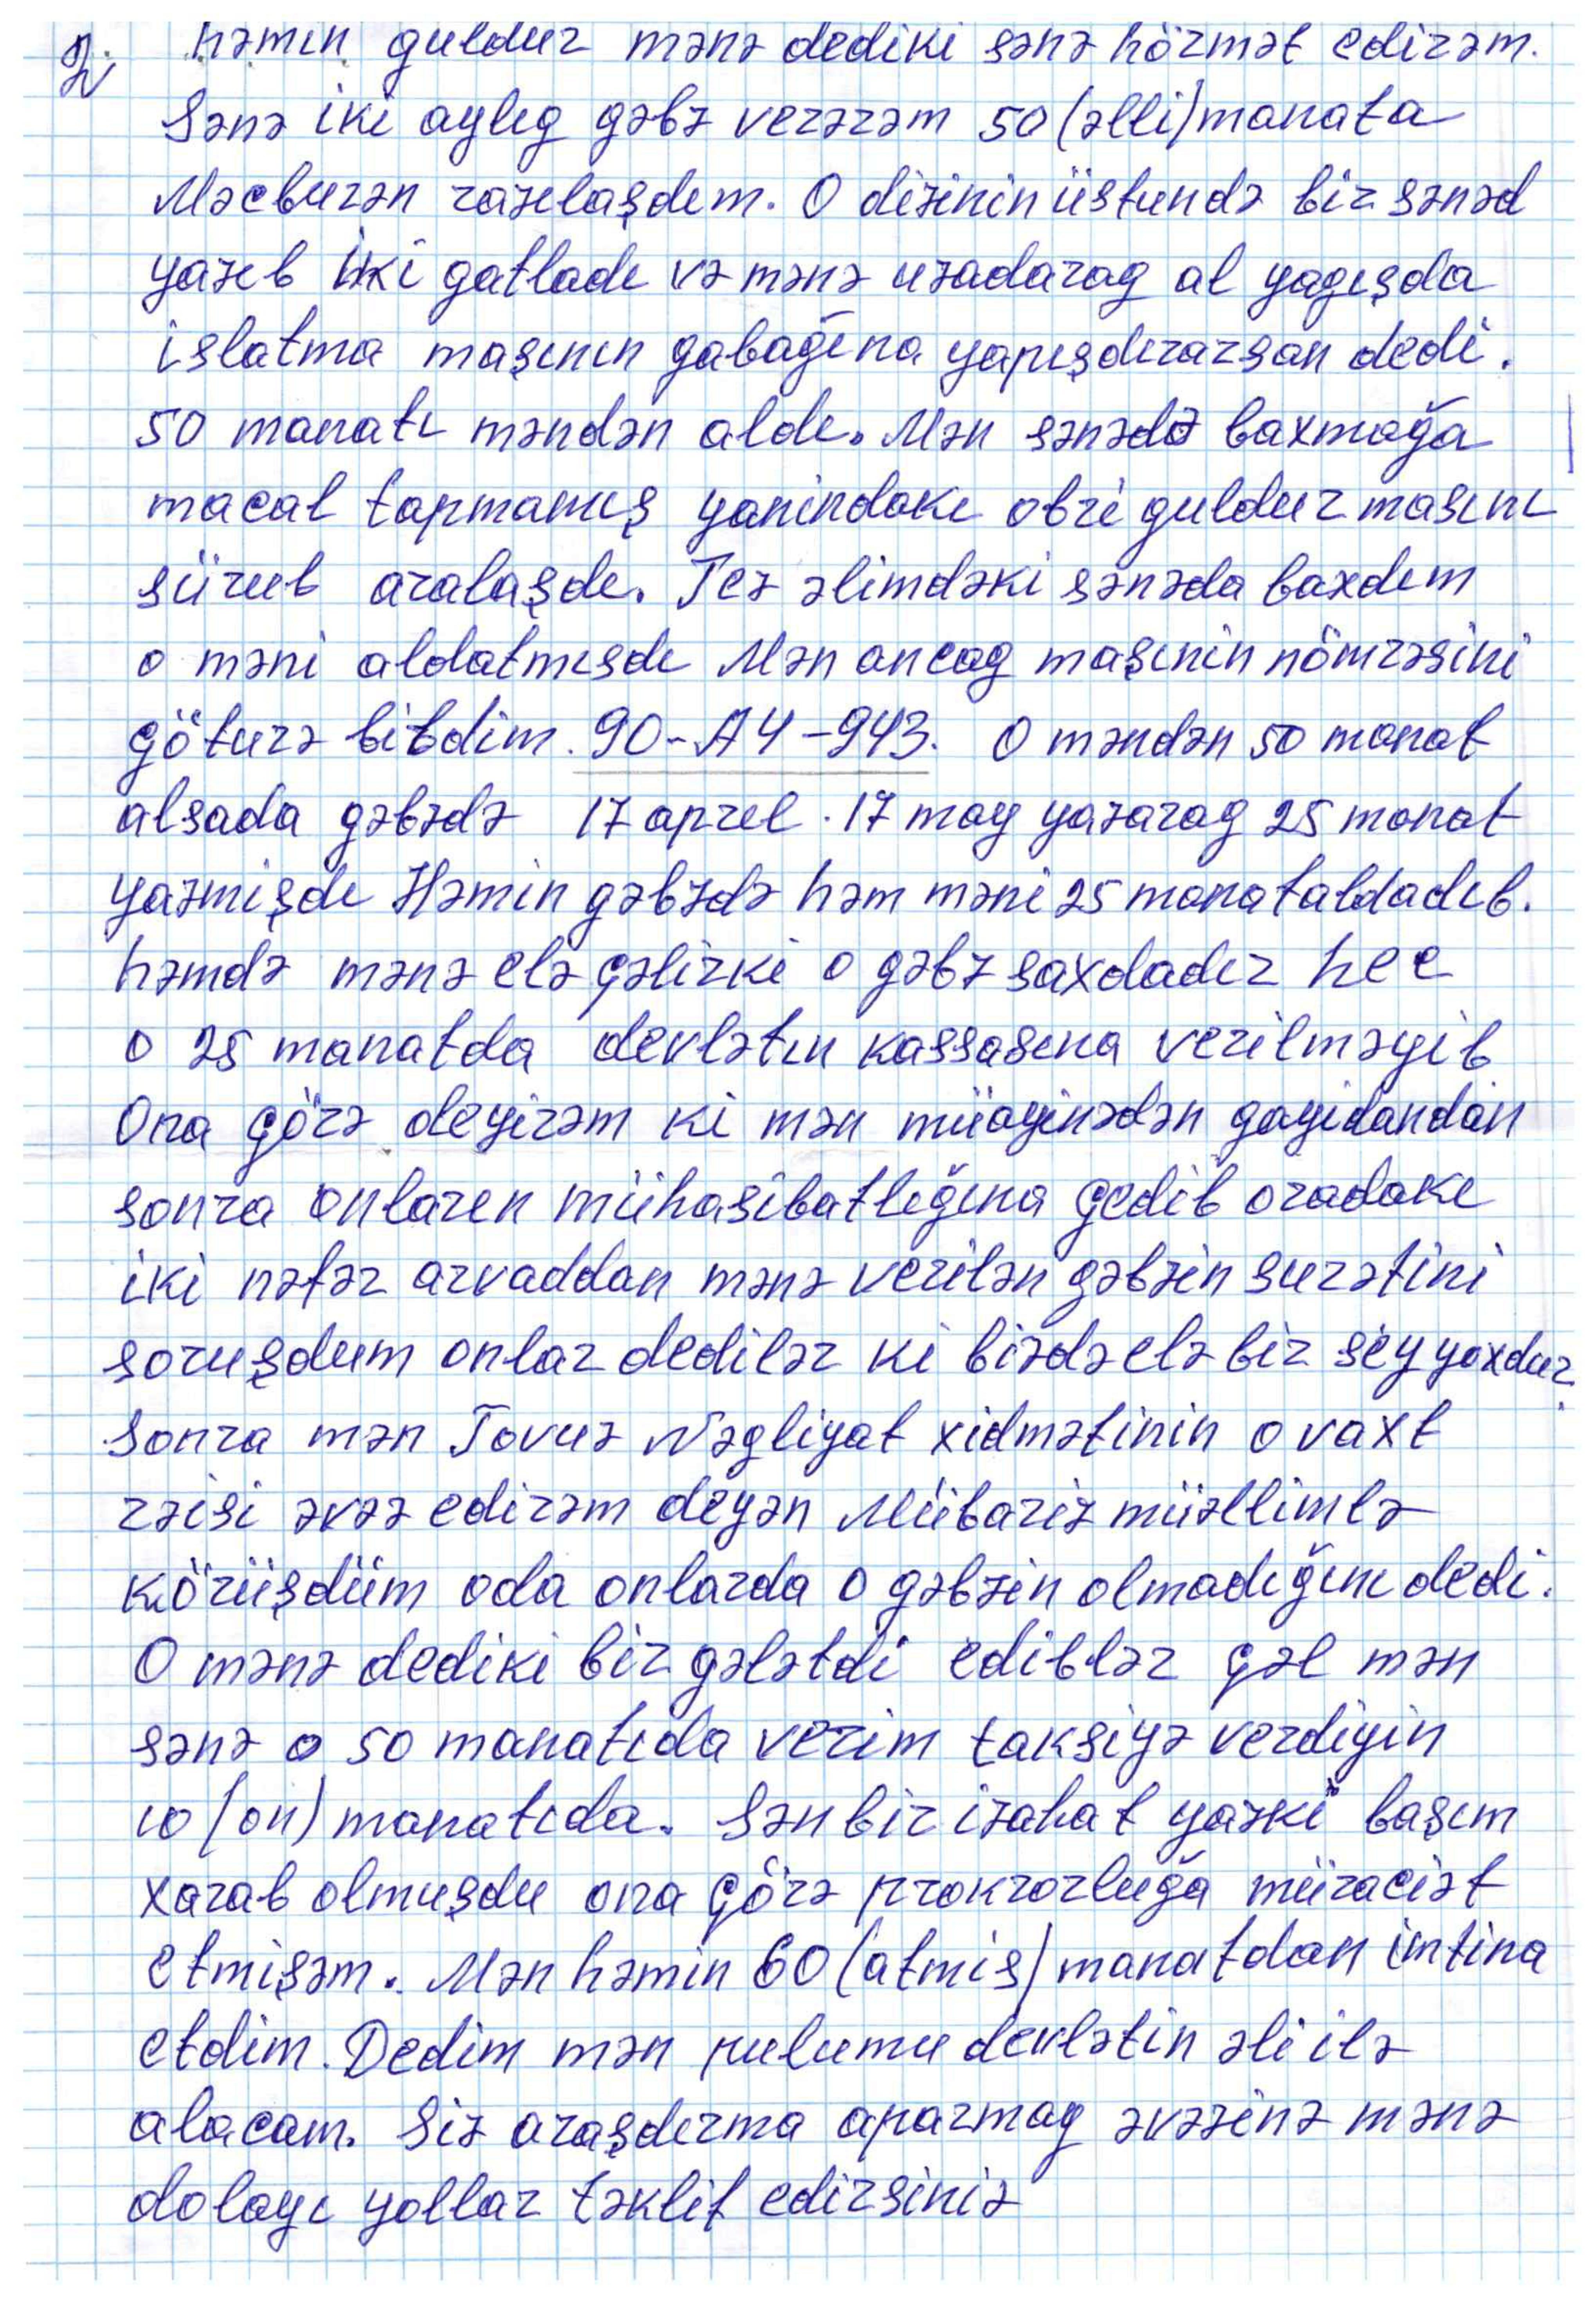 2. həmin quldur mənə dediki sənə hörmət edirəm.
Sənə iki aylıg gəbz verərəm 50 (əlli) manata
Məcburən razılaşdım. O dizinin üstundə bir sənəd
yazıb iki gatladı və mənə uzadarag al yagışda
islatma maşının gabağına yapışdırarsan dedi.
50 manatı məndən aldı. Mən sənədə baxmağa
macal tapmamış yanindakı obri guldur masını
sürub aralaşdı. Tez əlimdəki sənəda baxdım
o məni aldatmısdı Mən ancag maşının nömrəsini
götura bildim. 90-AY-943. O məndən 50 manat
alsada gəbzdə 17 aprel. 17 may yazarag 25 manat
yazmişdı Həmin gəbzdə həm məni 25 manat aldadıb.
həmdə mənə elə gəlirki o gəbz saxdadır hec
o 25 manatda devlətın kassasına verilməyib
Ona görə deyirəm ki mən müayinədən gayıdandan
sonra onların mühasibatlığına gedib oradakı
iki nəfər arvaddan mənə verilən gəbzin surətini
soruşdum onlar dedilər ki bizdə elə bir şey yoxdur.
Sonra mən Tovuz Nəgliyat xidmətinin o vaxt
rəisi əvəz edirəm deyən Mübariz müəllimlə
körüşdüm oda onlarda o gəbzin olmadığını dedi.
O mənə dediki bir gələtdi ediblər gəl mən
sənə o 50 manatıda verim taksiyə verdiyin
10 (on) manatıda. Sən bir izahat yazki başım
xarab olmuşdu ona görə prokrorluğa müraciət
etmişəm. Mən həmin 60 (atmis) manatdan imtina
etdim. Dedim mən pulumu devlətin əli ilə
alacam. Siz araşdırma aparmag əvəzinə mənə
dolayı yollar təklif edirsiniz